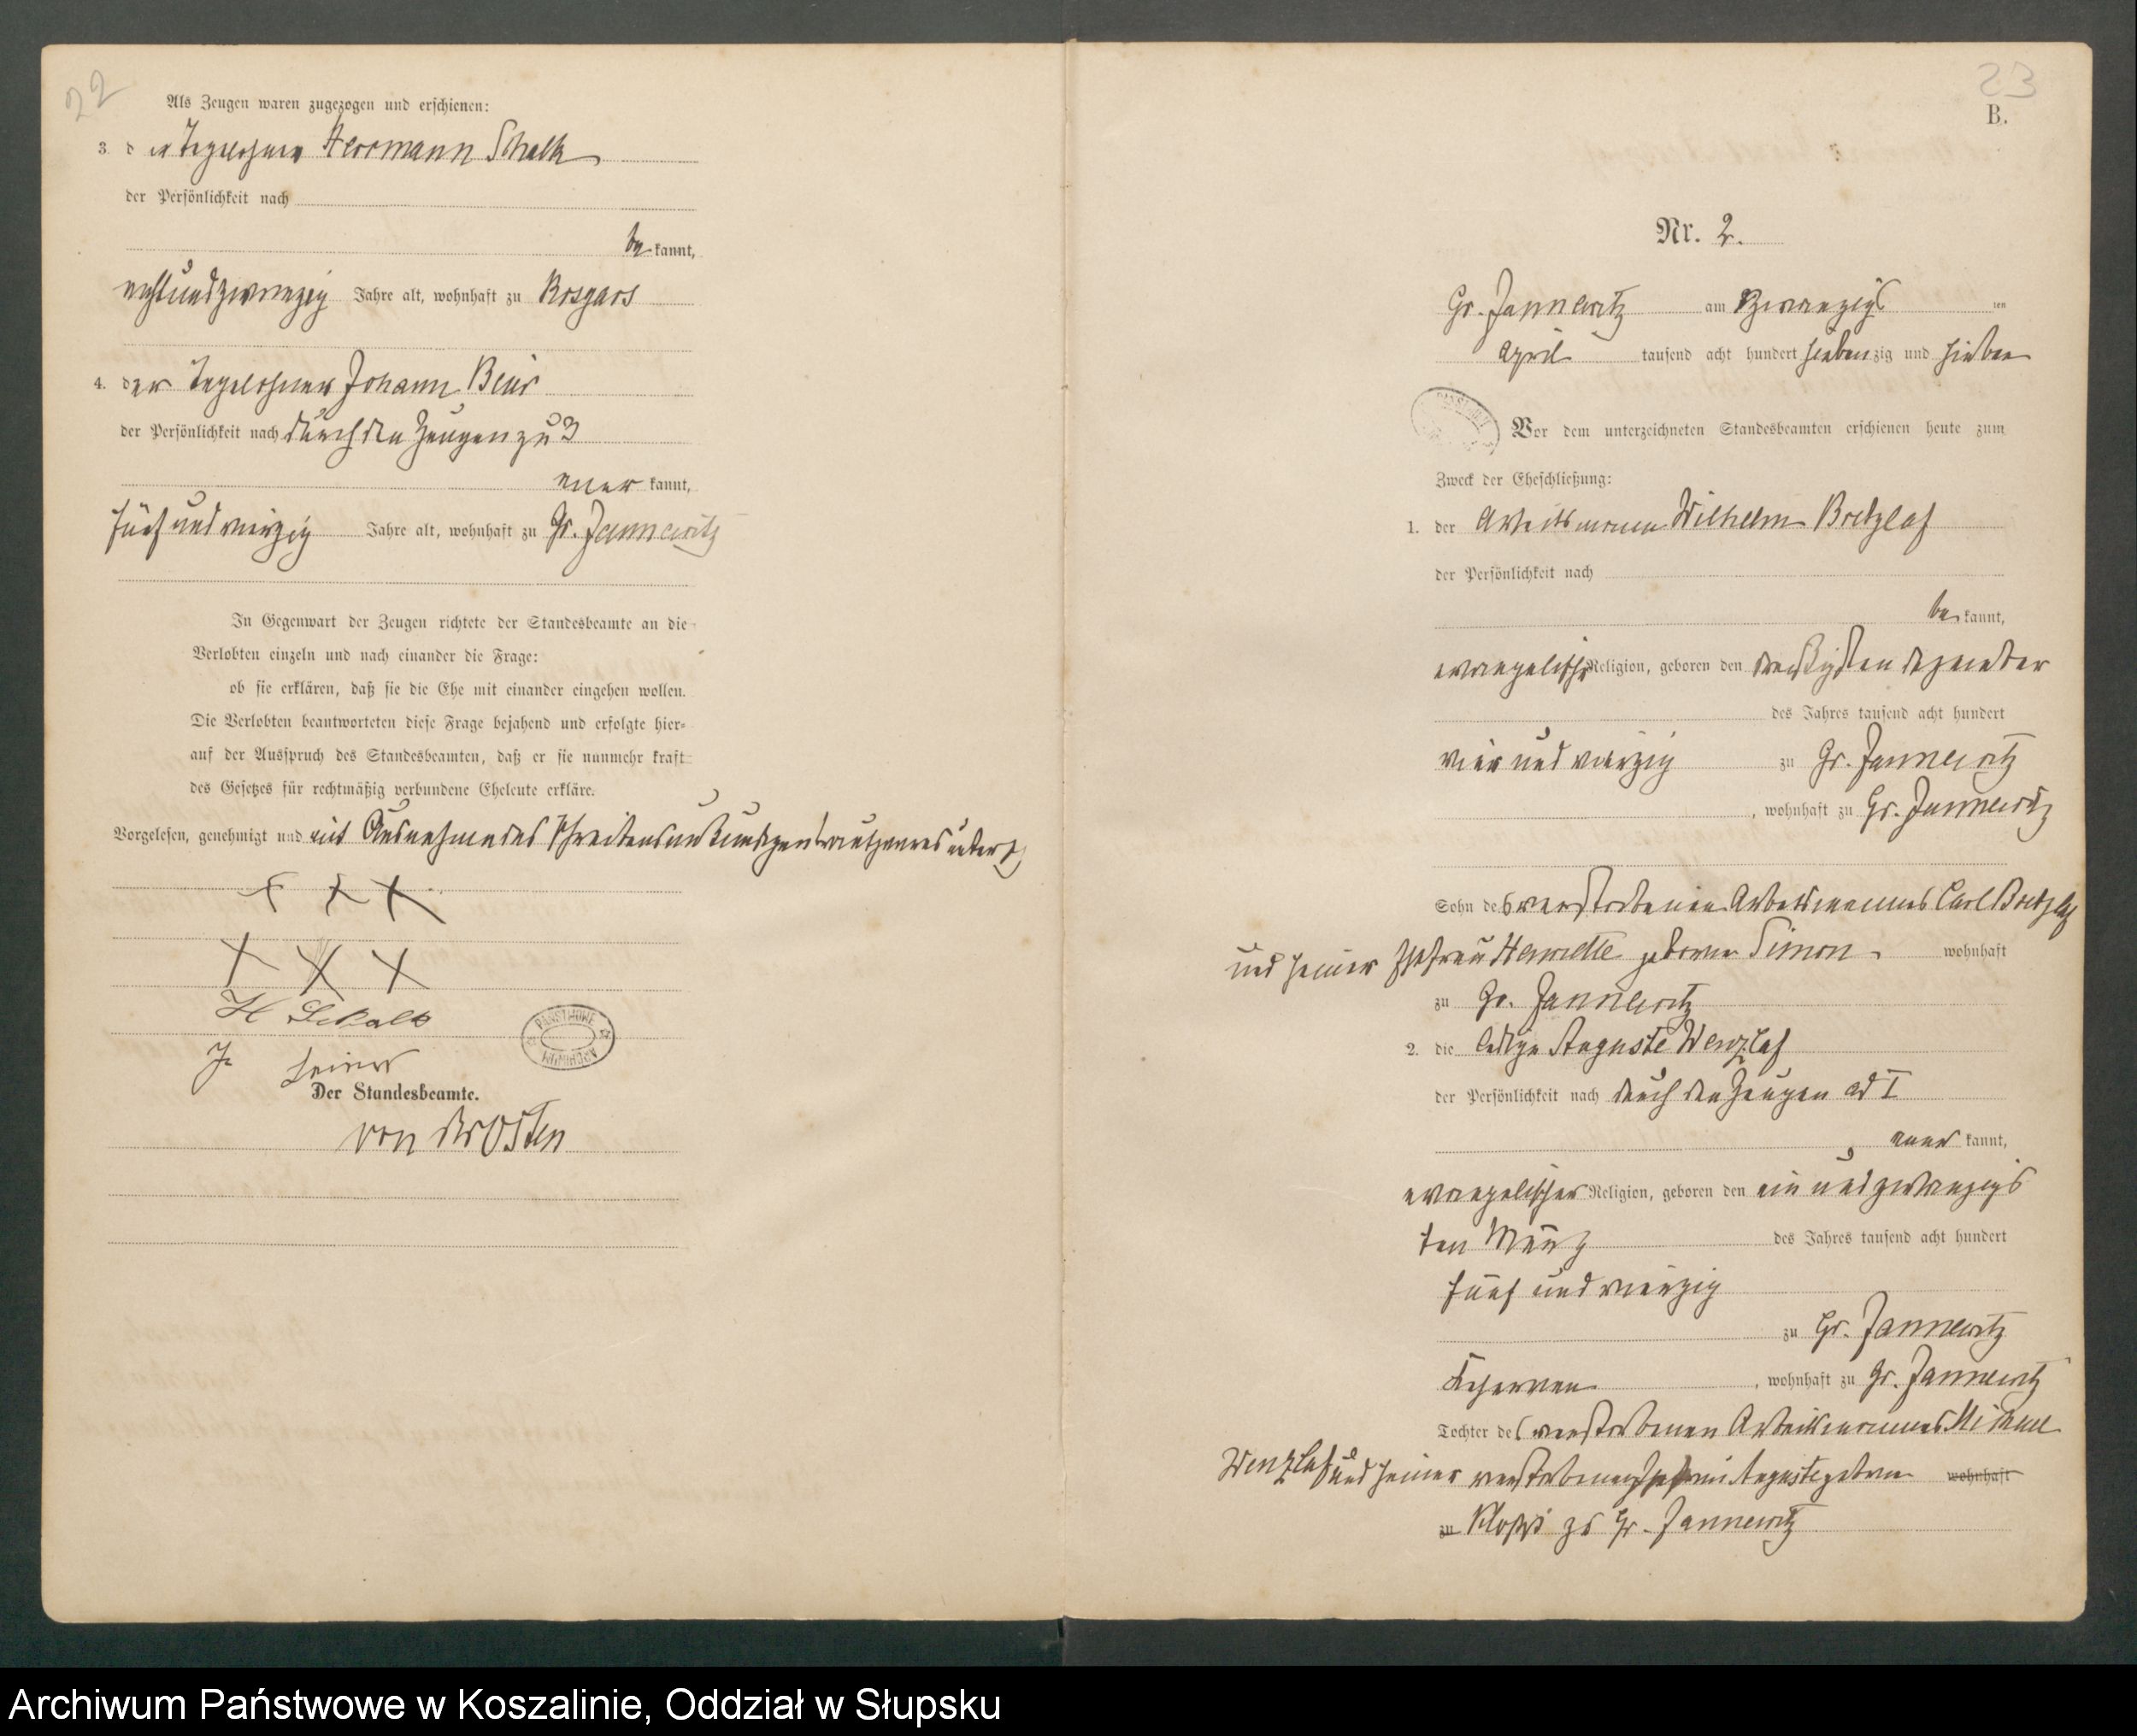 22
Als Zeugen waren zugezogen und erschienen:
3. der Tagelöhner Herrmann Schalk
der Persönlichkeit nach
be kannt,
achtundzwanzig Jahre alt, wohnhaft zu Rosgars
4. der Tagelöhner Johann
der Persönlichkeit nach durch den Zeugen zu 3
aner kannt,
fünf und vierzig Jahre alt, wohnhaft zu Gr. Jannewitz
In Gegenwart der Zeugen richtete der Standesbeamte an die
Verlobten einzeln und nach einander die Frage:
ob sie erklären, daß sie die Ehe mit einander eingehen wollen.
Die Verlobten beantworteten diese Frage bejahend und erfolgte hier-
auf der Ausspruch des Standesbeamten, daß er sie nunmehr kraft
des Gesetzes für rechtmäßig verbundene Eheleute erkläre.
Vorgelesen, genehmigt und mit Ausnahme des Schreibensunkundigen
+ + +
+ + +
H Schalk
J.
Der Standesbeamte.
von der Osten
23
B.
Nr. 2.
Gr. Jannewitz am zwanzigs ten
April tausend acht hundert sieben zig und sieben
Vor dem unterzeichneten Standesbeamten erschienen heute zum
Zweck der Eheschließung:
1. der Arbeitsmann Wilhelm Bretzlaf
der Persönlichkeit nach
be kannt,
evangelischer Religion, geboren den dreißigsten Dezember
des Jahres tausend acht hundert
vier und vierzig zu Gr. Jannewitz
, wohnhaft zu Gr. Jannewitz
Sohn des verstorbenen Arbeitsmannes Carl Bretzlaf
und seiner Ehefrau Henriette geborne Simon wohnhaft
zu Gr. Jannewitz
2. die ledige Auguste Wenzlaf
der Persönlichkeit nach durch den Zeugen ad I
aner kannt,
evangelischer Religion, geboren den ein und zwanzigs
ten März des Jahres tausend acht hundert
fünf und vierzig
zu Gr. Jannewitz
, wohnhaft zu Gr. Jannewitz
Tochter des verstorbenen Arbeitsmannes
Wenzlaf und seiner verstorbenen Ehefrau Auguste geborne wohnhaft
zu zu Gr. Jannewitz
Archiwum Państwowe w Koszalinie, Oddział w Słupsku